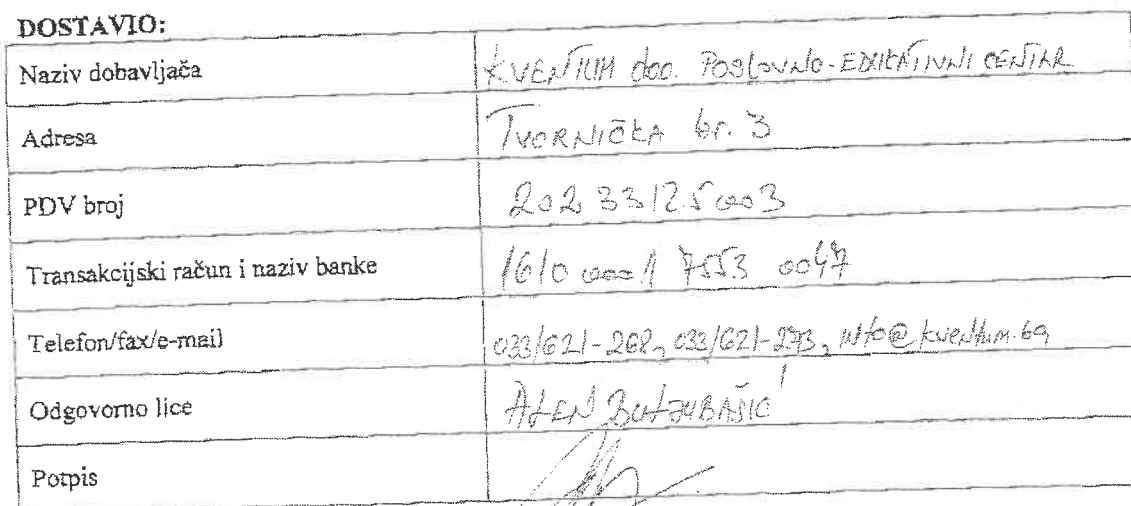 DOSTAVIO:
Naziv dobavljača KVENTUM doo. POSLOVNO-EDUKATIVNI CENTAR
Adresa TVORNIČKA br. 3
PDV broj 202331250003
Transakcijski račun i naziv banke 1610 0001 7553 0047
Telefon/fax/e-mail 033/621-268, 033/621-273, info@kventum.ba
Odgovorno lice ALEN BULJUBAŠIĆ
Potpis